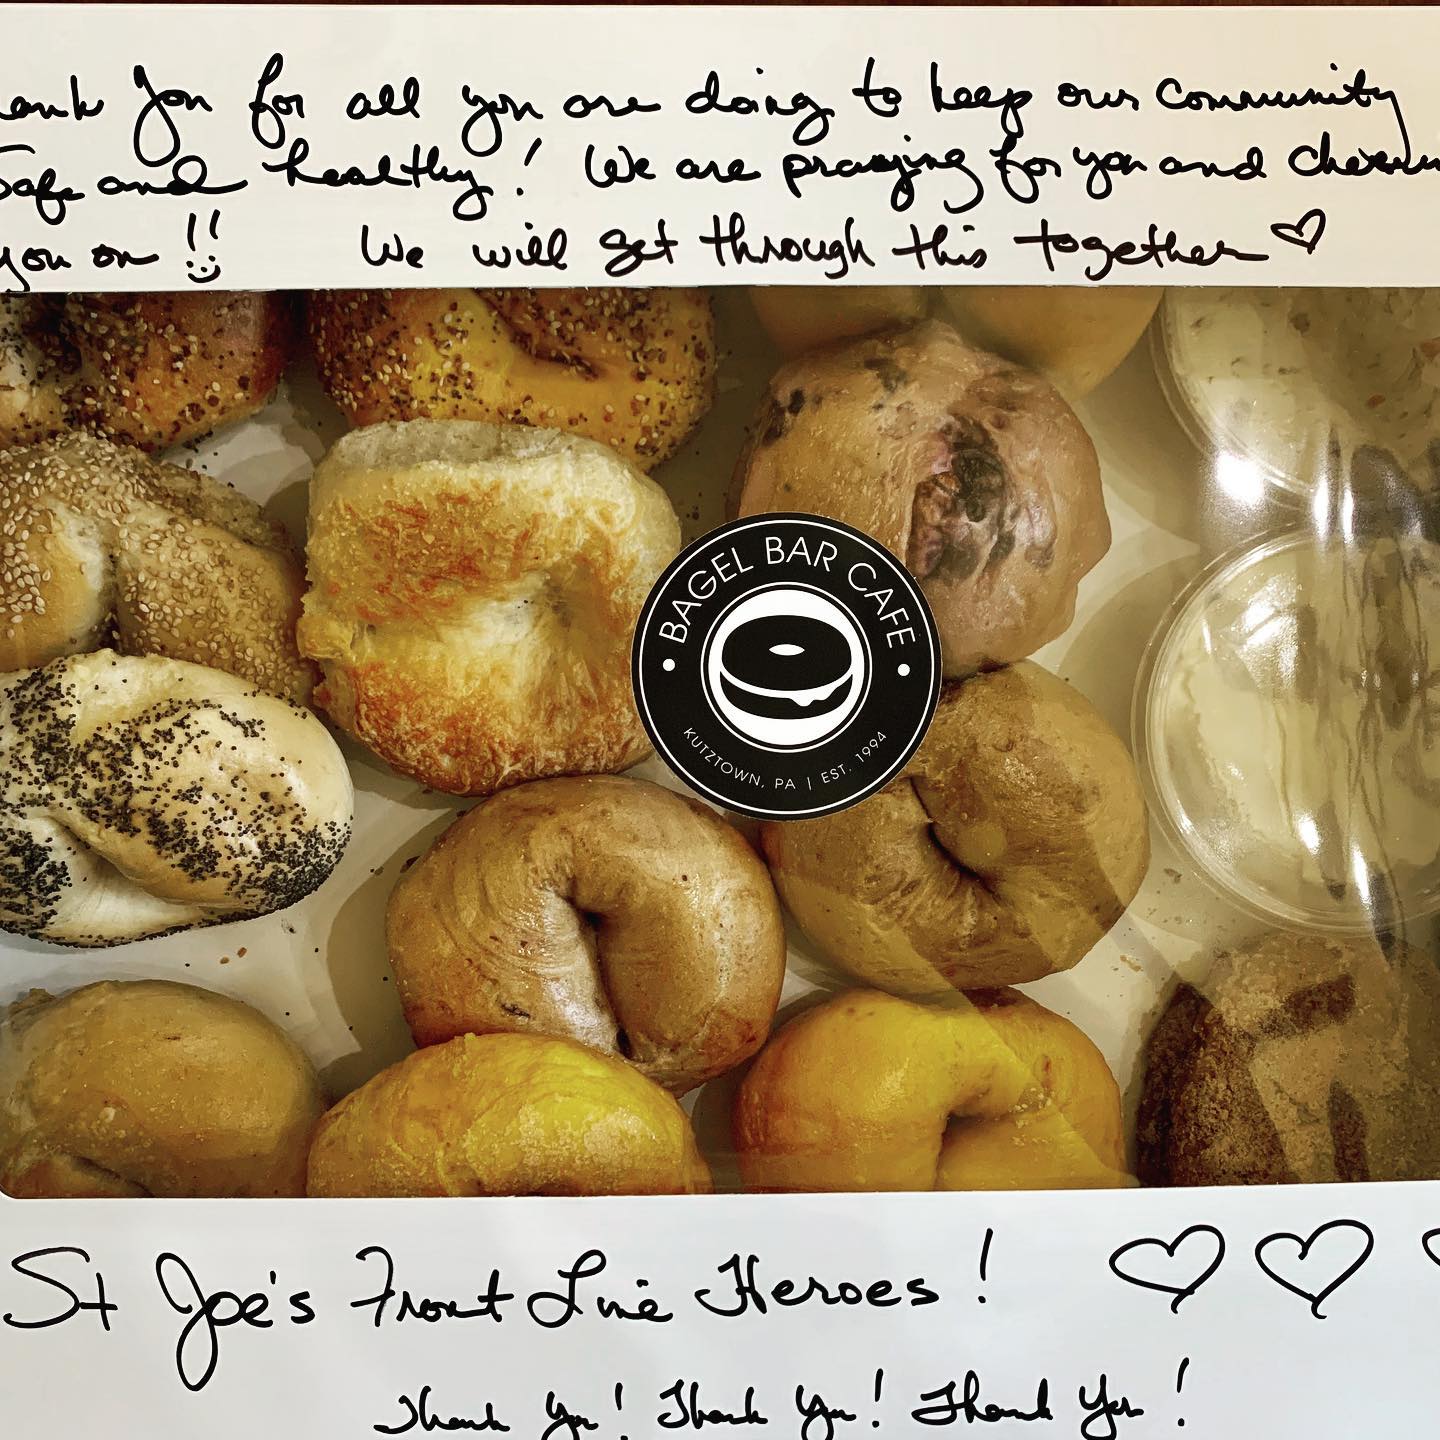 ank you for all you are doing to keep our community
Safe and healthy! We are praying for you and cheerin
you on!!
We will get through this together
BAGEL BAR CAFE
KUTZTOWN, PA | EST. 1994
St Joe's Front Line Heroes!
Thank you! Thank You! Thank You!